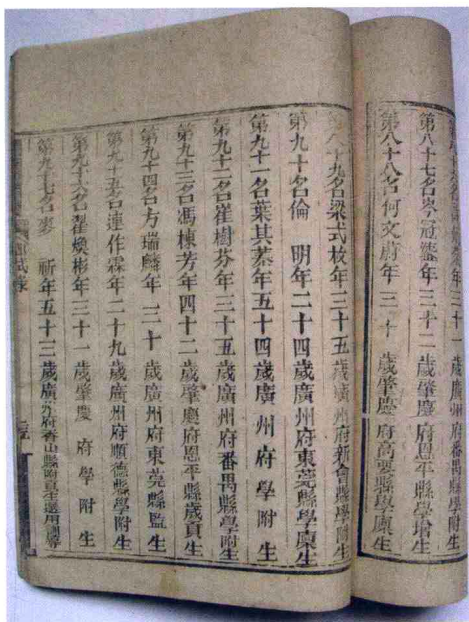 第八十七名岑冠鑾年三十二歲肇慶府恩平縣學增生
第八十八名何文蔚年三十歲肇慶府高要縣學廩生
第八十九名梁式枝年三十五歲廣州府新會縣學附生
第九十名倫明年二十四歲廣州府東莞縣學廩生
第九十一名葉其蓁年五十四歲廣州府學附生
第九十二名崔樹芬年三十五歲廣州府番禺縣學附生
第九十三名馮棟芳年四十二歲肇慶府恩平縣歲貢生
第九十四名方瑞麟年三十歲廣州府東莞縣監生
第九十五名連作霖年二十九歲廣州府順德縣學附生
第九十六名翟煥彬年三十一歲肇慶府學附生
第九十七名麥祈年五十三歲廣州府香山縣附貢生選用訓導